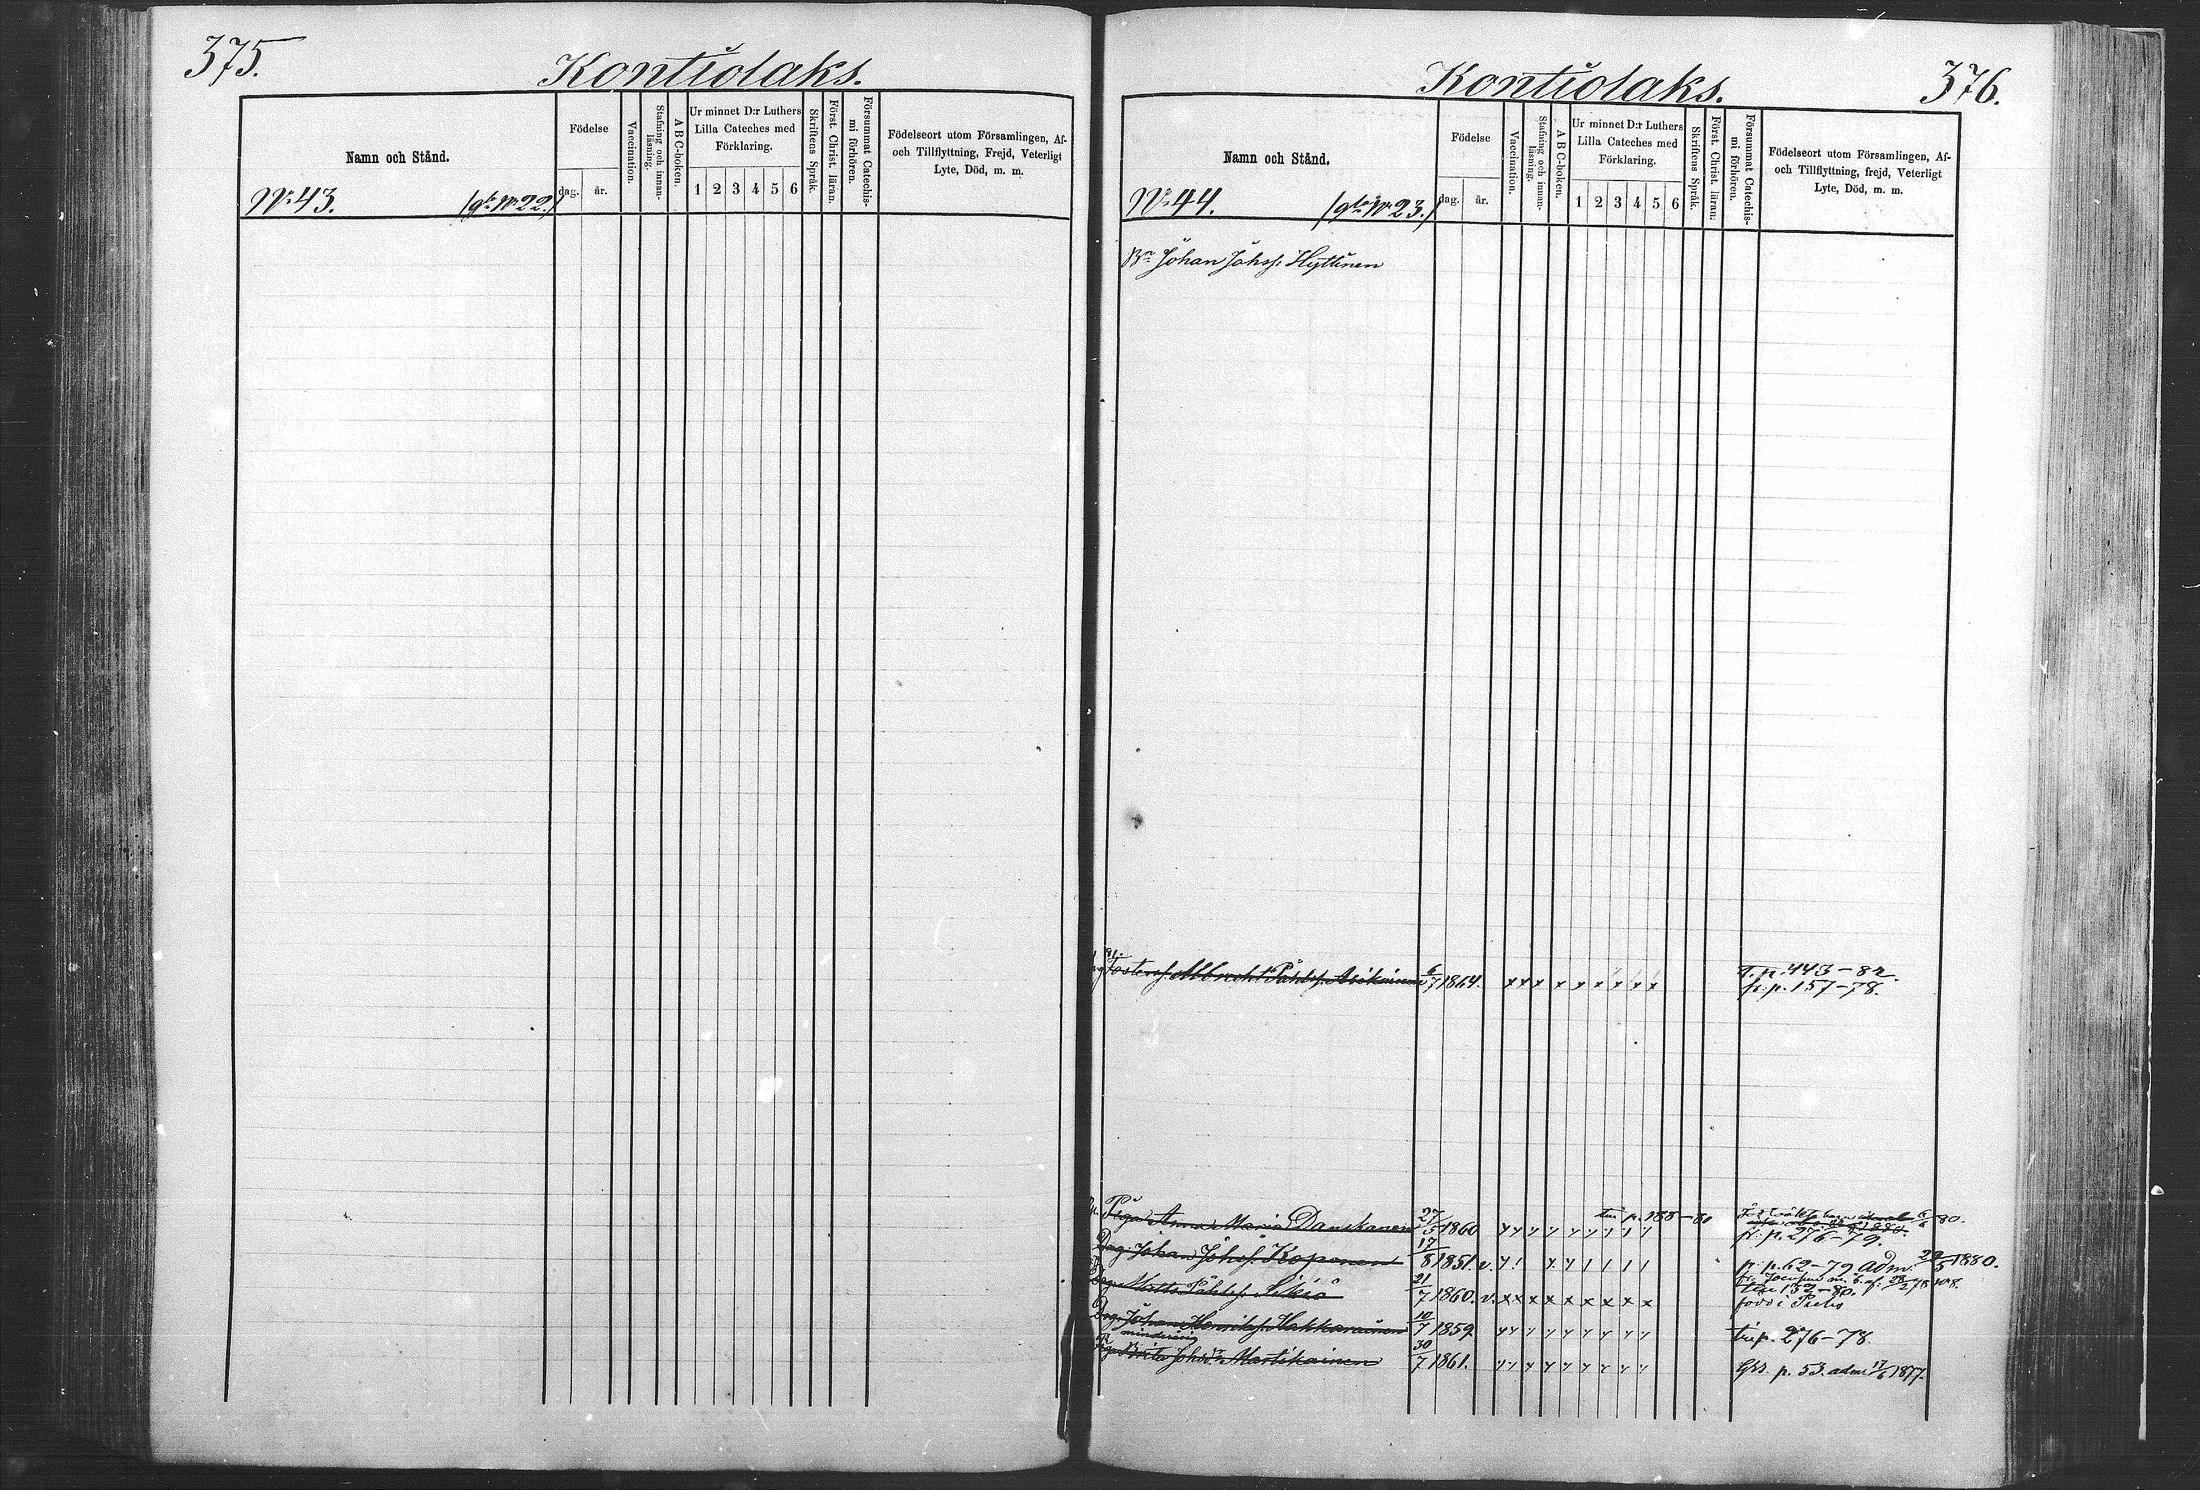 375.
Kontiolaks.
Namn och Stånd.
Födelse
dag. år.
Vaccination.
Stafning och innan-
läsning.
A B C-boken.
Ur minnet D:r Luthers
Lilla Cateches med
Förklaring.
1 2 3 4 5 6
Skriftens Språk.
Först. Christ. läran.
Försummat Catechis-
mi förhören.
Födelseort utom Församlingen, Af-
och Tillflyttning, Frejd, Veterligt
Lyte, Död, m. m.
No 43. /gla No 22./
Kontiolaks.
376.
Namn och Stånd.
Födelse
dag. år.
Vaccination.
Stafning och innan-
läsning.
A B C-boken.
Ur minnet D:r Luthers
Lilla Cateches med
Förklaring.
1 2 3 4 5 6
Skriftens Språk.
Först. Christ. läran.
Försummat Catechis-
mi förhören.
Födelseort utom Församlingen, Af-
och Tillflyttning, frejd, Veterligt
Lyte, Död, m. m.
No 44. /gla No 23./
Bn Johan Johss. Hyttinen
Albrecht Påhlss. Asikainen 6/7 1864. x x x x x x x x x T. p. 443-82
fr. p. 157-78.
Piga Anna Maria Danskanen 27/5 1860
fr. p. 276-79.
Drg. Johan Johss. Koponen 17/8 1851. v. fr. p. 62-79 adm. 1880.
Drg. Matts Påhlss. Sikiö 21/7 1860. v. x x x x x x x x x 152-80.
född i Pielis
Drg. Johan Henrikss. Hakkarainen 10/7 1859 tu p. 276-78.
minderårig
Piga Brita Johsdr Martikainen 30/7 1861. p. 53. adm 17/6 1877.